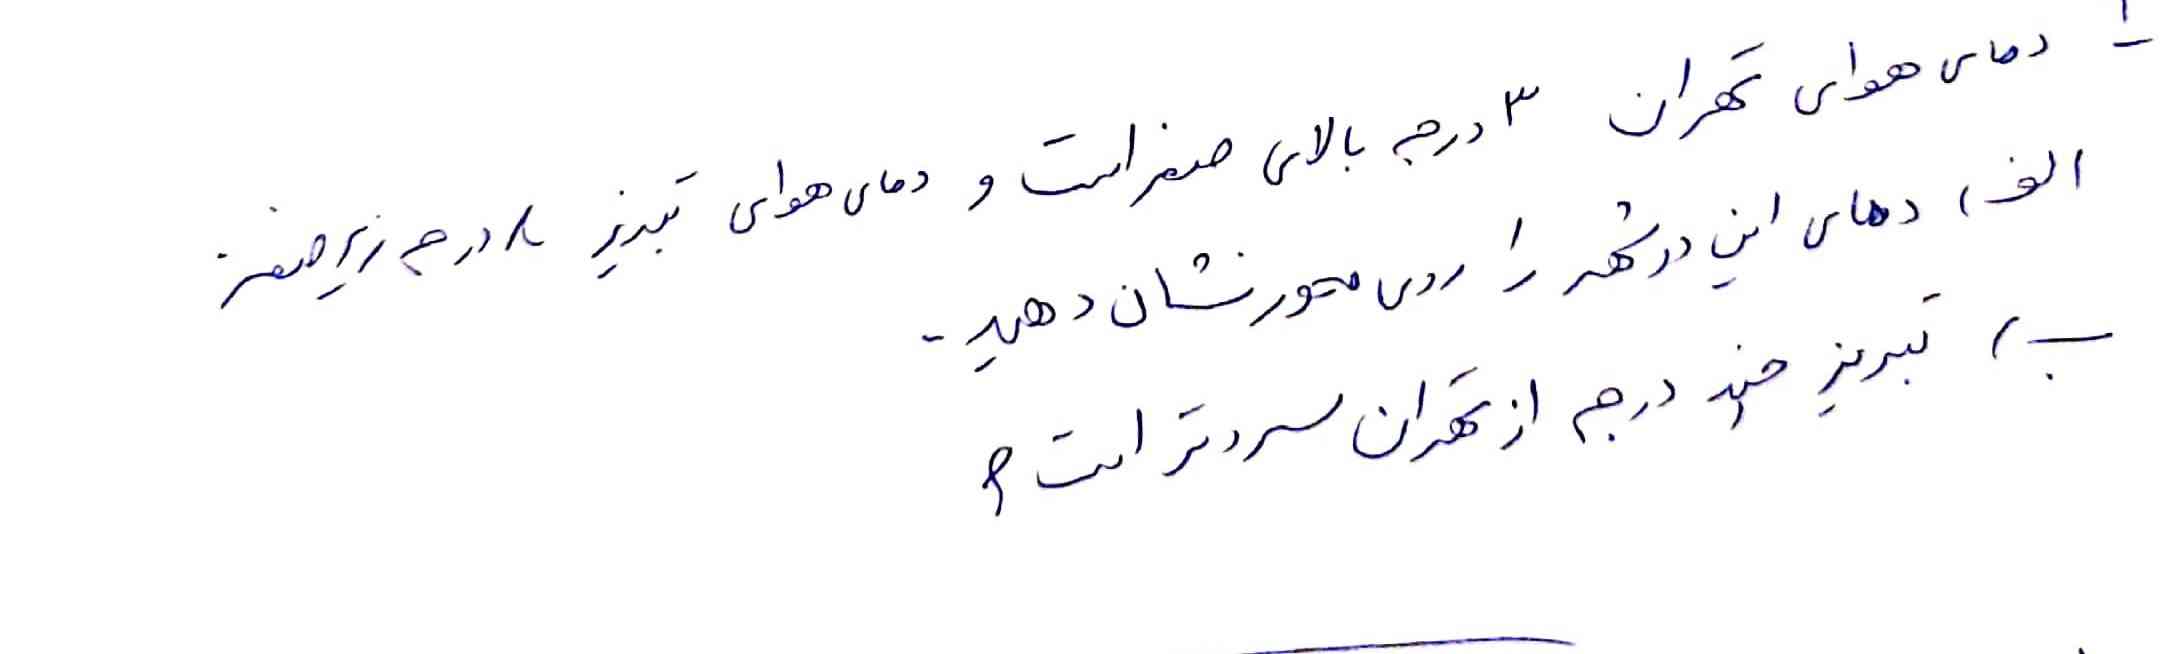 ۱- دمای هوای تهران ۳ درجه بالای صفر است و دمای هوای تبریز ۸ درجه زیر صفر.
الف) دمای این دو شهر را روی محور نشان دهید.
ب) تبریز چند درجه از تهران سردتر است؟